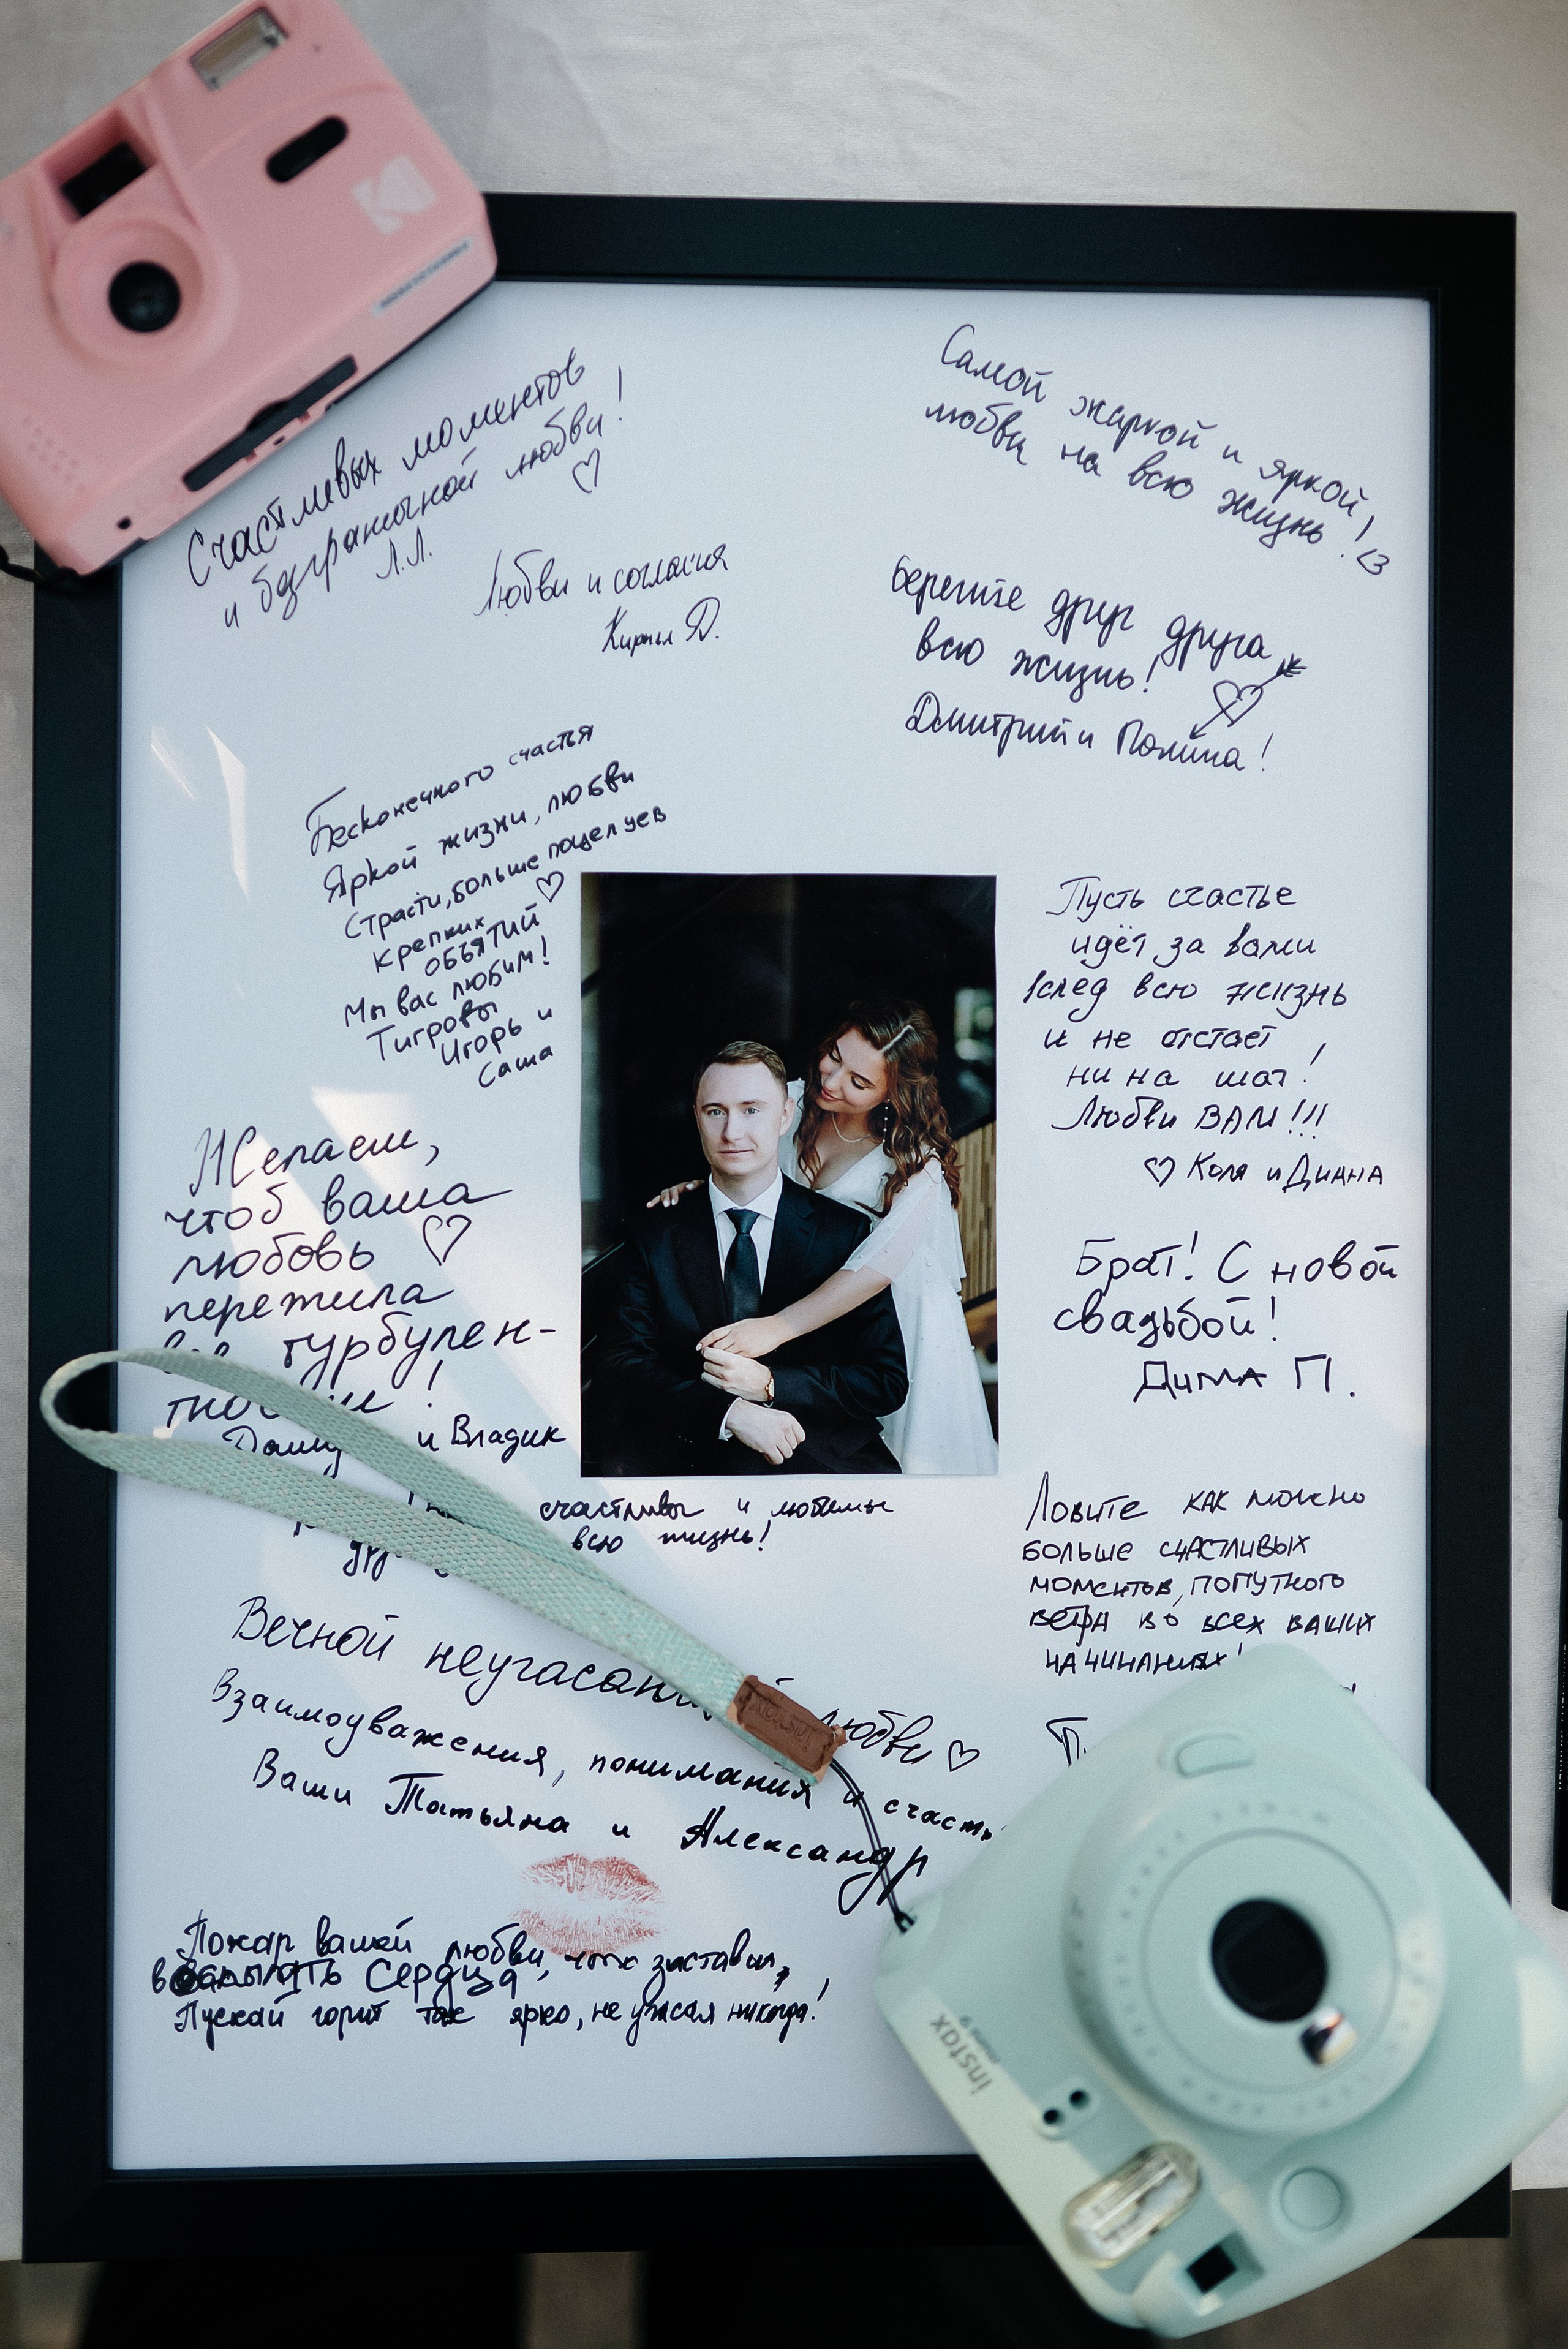 Счастливых моментов
и безграничной любви!
Л.Л.
Самой жаркой и яркой
любви на всю жизнь! <3
Любви и согласия
Кирилл Д.
Берегите друг друга
всю жизнь!
Дмитрий и Полина!
Бесконечного счастья
Яркой жизни, любви
Страсти, больше поцелуев
крепких
объятий
Мы вас любим!
Тигровы
Игорь и
Саша
Пусть счастье
идёт за вами
вслед всю жизнь
и не отстаёт
ни на шаг!
Любви ВАМ!!!
Коля и Диана
Желаем,
чтоб ваша
любовь
пережила
турбулен-
и Владик
Брат! С новой
свадьбой!
Дима П.
счастливы и любимы
всю жизнь!
Ловите как можно
больше счастливых
моментов, попутного
ветра во всех ваших
начинаниях!
Вечной любви
Взаимоуважения, понимания и
Ваши Татьяна и Александр
Пожар вашей любви, что заставил
сердца
Пускай горит так ярко, не угасая никогда!
instax
instax
mini 9